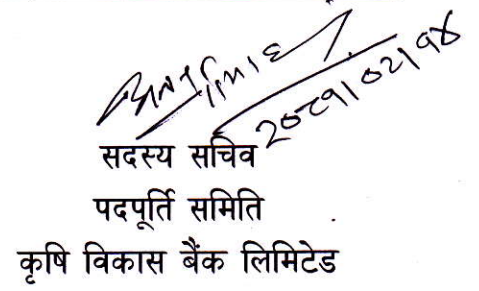 २०८१/०२/१४
सदस्य सचिव
पदपूर्ति समिति
कृषि विकास बैंक लिमिटेड